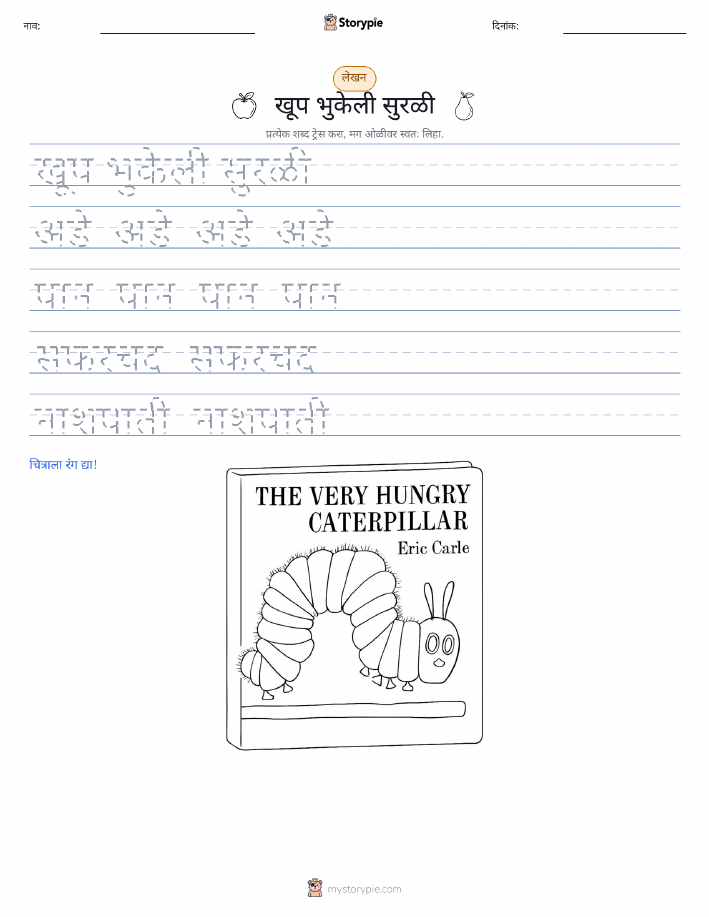 नाव:
Storypie
दिनांक:
लेखन
खूप भुकेली सुरळी
प्रत्येक शब्द ट्रेस करा, मग ओळीवर स्वतः लिहा.
खूप भुकेली सुरळी
अंडे अंडे अंडे अंडे
पान पान पान पान
सफरचंद सफरचंद
नाशपाती नाशपाती
चित्राला रंग द्या!
THE VERY HUNGRY
CATERPILLAR
Eric Carle
mystorypie.com